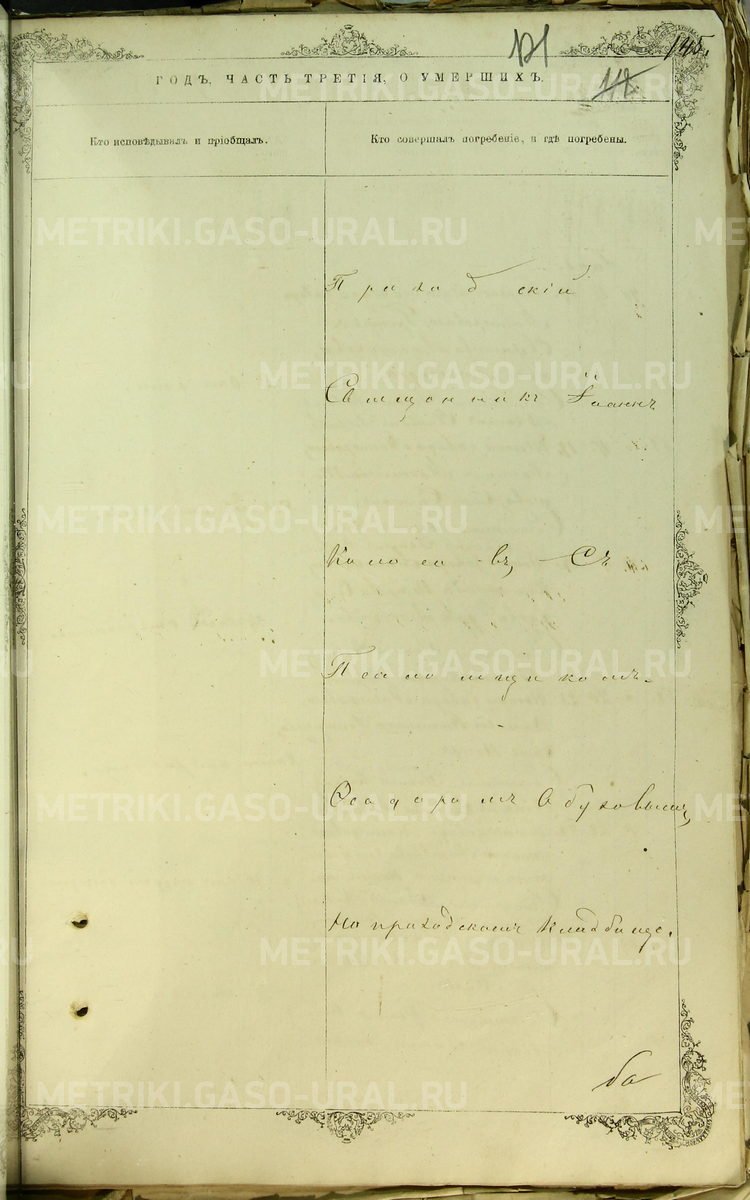 145.
121
112.
ГОДЪ, ЧАСТЬ ТРЕТІЯ, О УМЕРШИХЪ.
Кто исповѣдывалъ и пріобщалъ.
Кто совершалъ погребеніе, и гдѣ погребены.
METRIKI.GASO-URAL.RU
Приходскій
Священникъ Іоаннъ
въ, Съ
Псаломщикомъ
Ѳеодоромъ Обуховымъ,
На приходскомъ кладбище.